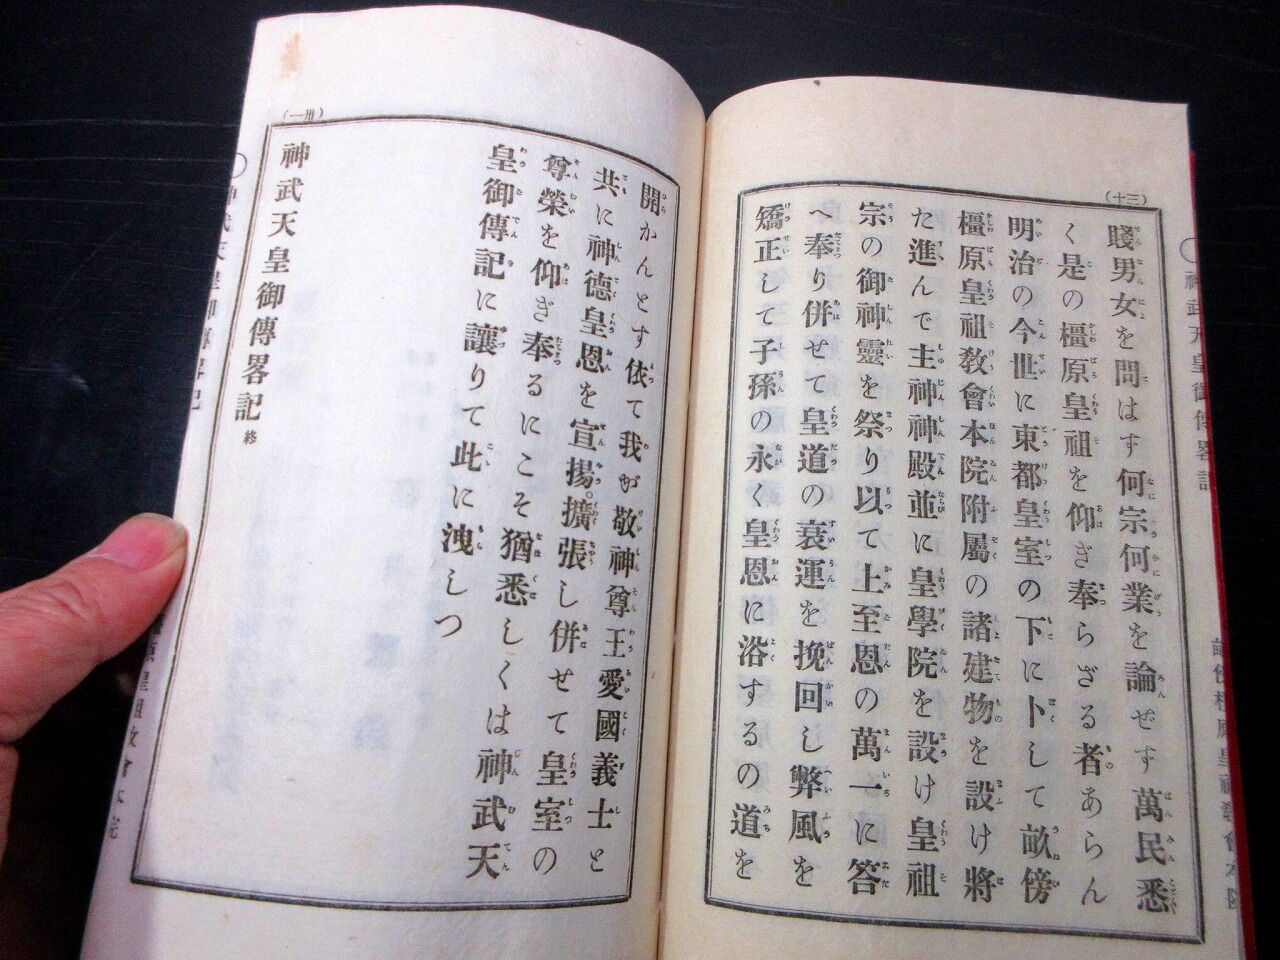 (十三)
賤男女を問はす何宗何業を論せす萬民悉
く是の橿原皇祖を仰ぎ奉らざる者あらん
明治の今世に東都皇室の下に卜して畝傍
橿原皇祖敎會本院附屬の諸建物を設け將
た進んで主神神殿並に皇學院を設け皇祖
宗の御神靈を祭り以て上至恩の萬一に答
へ奉り併せて皇道の衰運を挽回し弊風を
矯正して子孫の永く皇恩に浴するの道を
(一卅)
開かんとす依て我が敬神尊王愛國義士と
共に神德皇恩を宣揚擴張し併せて皇室の
尊榮を仰ぎ奉るにこそ猶悉しくは神武天
皇御傳記に讓りて此に洩しつ
神武天皇御傳畧記 終